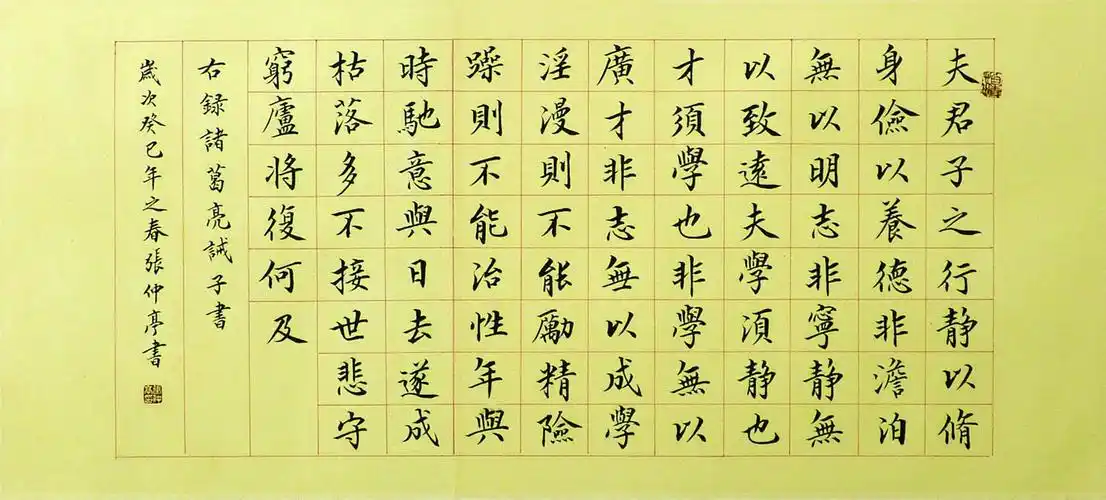 夫君子之行静以脩
身儉以養德非澹泊
無以明志非寧静無
以致遠夫學湏静也
才須學也非學無以
廣才非志無以成學
淫漫則不能勵精險
躁則不能治性年與
時馳意與日去遂成
枯落多不接世悲守
窮廬將復何及
右録諸葛亮誡子書
歲次癸巳年之春張仲亭書